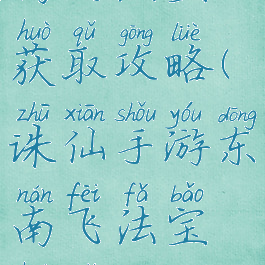 huò qǔ gōng lüè
获取攻略(
zhū xiān shǒu yóu dōng
诛仙手游东
nán fēi fǎ bǎo
南飞法宝